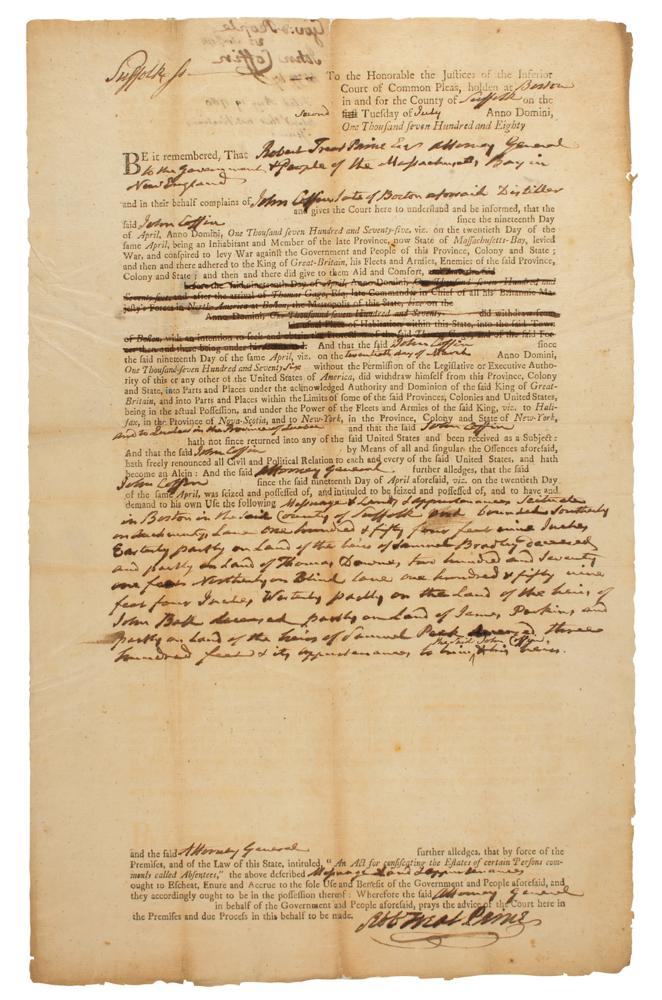 Suffolk ss
To the Honorable the Justices of the Inferior
Court of Common Pleas, holden at Boston
in and for the County of Suffolk on the
Second Tuesday of July Anno Domini,
One Thousand seven Hundred and Eighty
BE it remembered, That Robert Treat Paine Esr Attorney General
to the Government & People of the Massachusetts Bay in
New England
and in their behalf complains of John Coffin late of Boston aforesaid Distiller
and gives the Court here to understand and be informed, that the
said John Coffin since the nineteenth Day
of April, Anno Domini, One Thousand seven Hundred and Seventy-five, viz. on the twentieth Day of the
same April, being an Inhabitant and Member of the late Province, now State of Massachusetts-Bay, levied
War, and conspired to levy War against the Government and People of this Province, Colony and State;
and then and there adhered to the King of Great-Britain, his Fleets and Armies, Enemies of the said Province,
Colony and State; and then and there did give to them Aid and Comfort,
the said nineteenth Day of April Anno Domini, One Thousand seven Hundred and
Seventy-five, and after the arrival of Thomas Gage, Esq; late Commander in Chief of all his Britannic Ma-
jesty's Forces in North-America at Boston, the Metropolis of this State, viz. on the
Anno Domini, One Thousand seven Hundred and Seventy- did withdraw
Place of Habitation within this State, into the said Town
of Boston, with an intention to seek and
And that the said John Coffin since
the said nineteenth Day of the same April, viz. on the twentieth day of March Anno Domini,
One Thousand seven Hundred and Seventy Six without the Permission of the Legislative or Executive Autho-
rity of this or any other of the United States of America, did withdraw himself from this Province, Colony
and State, into Parts and Places under the acknowledged Authority and Dominion of the said King of Great-
Britain, and into Parts and Places within the Limits of some of the said Provinces, Colonies and United States,
being in the actual Possession, and under the Power of the Fleets and Armies of the said King, viz. to Hali-
fax, in the Province of Nova-Scotia, and to New-York, in the Province, Colony and State of New-York,
and to Quebec in the Province of Quebec and that the said John Coffin
hath not since returned into any of the said United States and been received as a Subject:
And that the said John Coffin by Means of all and singular the Offences aforesaid,
hath freely renounced all Civil and Political Relation to each and every of the said United States, and hath
become an Alien: And the said Attorney General further alledges, that the said
John Coffin since the said nineteenth Day of April aforesaid, viz. on the twentieth Day
of the same April, was seized and possessed of, and intituled to be seized and possessed of, and to have and
demand to his own Use the following Messuage & Land & Appurtenances Scituate
in Boston in the said County of Suffolk and bounded Southerly
on Lane one hundred & fifty four feet nine Inches
Easterly partly on Land of the heirs of Samuel Bradley deceased
and partly on Land of Thomas Downes two hundred and seventy
one feet Northerly on Blind lane one hundred & fifty nine
feet four Inches, Westerly partly on the Land of the heirs of
John Ball deceased partly on Land of James Perkins and
partly on Land of the heirs of Samuel Peck deceased three
the said John Coffin
hundred feet & its appurtenances to him & his heirs.
and the said Attorney General further alledges, that by force of the
Premises, and of the Law of this State, intituled, "An Act for confiscating the Estates of certain Persons com-
monly called Absentees," the above described Messuage Land & Appurtenances
ought to Escheat, Enure and Accrue to the sole Use and Benefit of the Government and People aforesaid, and
they accordingly ought to be in the possession thereof: Wherefore the said Attorney General
in behalf of the Government and People aforesaid, prays the advice of the Court here in
the Premises and due Process in this behalf to be made. Rob Treat Paine